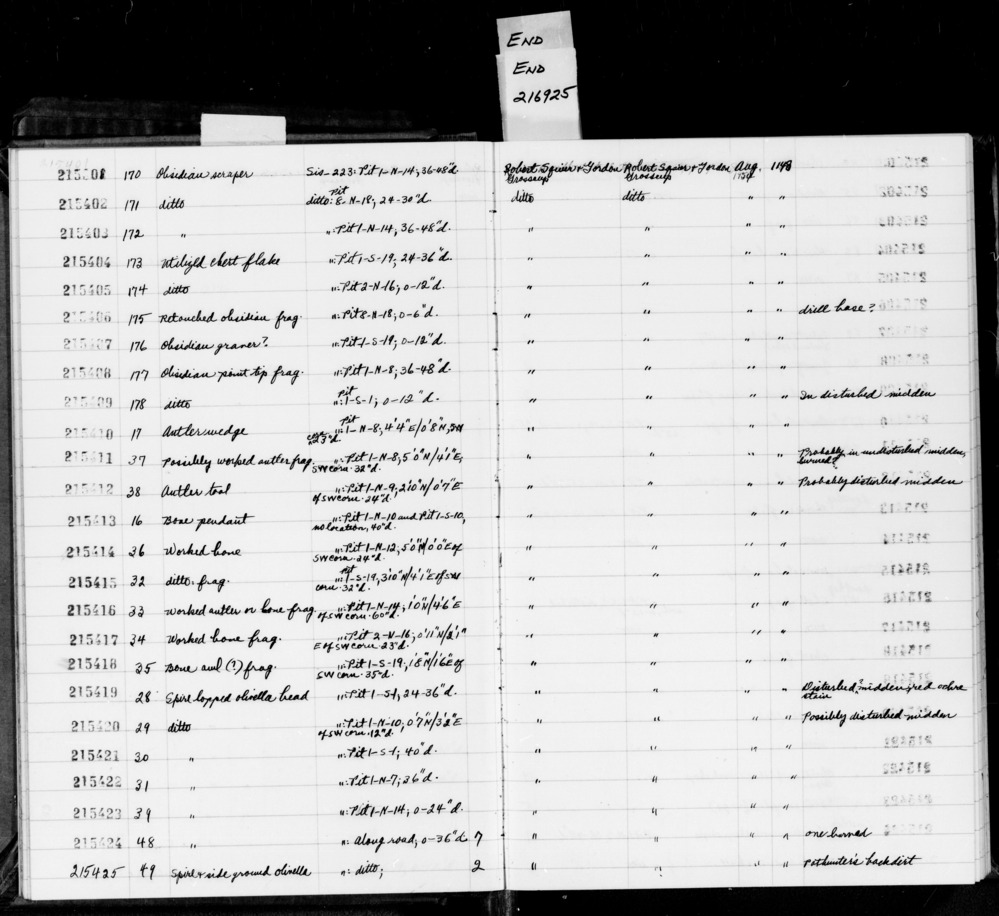 END
END
216925
215401 170 Obsidian scraper Sis-223: Pit 1-N-14; 36-48"d. Robert Squier + Gordon Grosscup Robert Squier + Gordon Grosscup Aug. 1148
215402 171 ditto ditto: Pit 8-N-18; 24-30"d. ditto ditto " "
215403 172 " ": Pit 1-N-14; 36-48"d. " " " "
215404 173 Utilized chert flake ": Pit 1-S-19; 24-36"d. " " " "
215405 174 ditto ": Pit 2-N-16; 0-12"d. " " " "
215406 175 Retouched obsidian frag. ": Pit 8-N-18; 0-6"d. " " " " drill base?
215407 176 Obsidian graver? ": Pit 1-S-19; 0-12"d. " " " "
215408 177 Obsidian point tip frag. ": Pit 1-N-8; 36-48"d. " " " "
215409 178 ditto ": Pit 1-S-1; 0-12"d. " " " " In disturbed midden
215410 17 Antler wedge ": Pit 1-N-8; 4'4"E/0'8"N; SW corn. 23"d. " " " "
215411 37 Possibly worked antler frag. ": Pit 1-N-8; 5'0"N/4'1"E, SW corn. 32"d. " " " " Probably in undisturbed midden, burned?
215412 38 Antler tool ": Pit 1-N-9; 2'0"N/0'7"E of SW corn. 24"d. " " " " Probably disturbed midden
215413 16 Bone pendant ": Pit 1-N-10 and Pit 1-S-10, no location, 40"d. " " " "
215414 36 Worked bone ": Pit 1-N-12; 5'0"N/0'0"E of SW corn. 24"d. " " " "
215415 32 ditto: frag. ": Pit 1-S-19, 3'0"N/4'1"E of SW corn. 32"d. " " " "
215416 33 Worked antler or bone frag. ": Pit 1-N-14; 1'0"N/4'6"E of SW corn. 60"d. " " " "
215417 34 Worked bone frag. ": Pit 2-N-16; 0'11"N/2'1" E of SW corn. 23"d. " " " "
215418 35 Bone awl (?) frag. ": Pit 1-S-19; 1'8"N/1'6"E of SW corn. 35"d. " " " "
215419 28 Spire-lopped olivella bead ": Pit 1-S-1; 24-36"d. " " " " Disturbed? midden; red ochre stain
215420 29 ditto ": Pit 1-N-10; 0'7"N/3'2"E of SW corn. 12"d. " " " " Possibly disturbed midden
215421 30 " ": Pit 1-S-1; 40"d. " " " "
215422 31 " ": Pit 1-N-7; 36"d. " " " "
215423 39 " ": Pit 1-N-14; 0-24"d. " " " "
215424 48 " ": Along road; 0-36"d. 7 " " " " one burned
215425 49 Spire + side ground olivella ": ditto; 2 " " " " Pothunter's backdirt